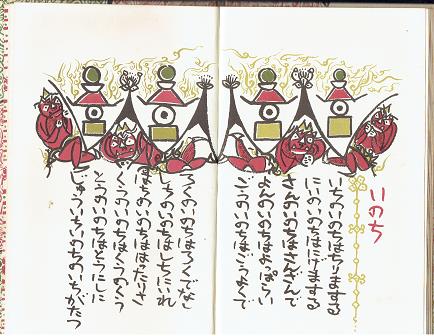 いのち
いちのいのちはちりまする
にいのいのちはにげまする
さんのいのちはさんざんで
よんのいのちはよっぱらい
ごおのいのちはごうよくで
ろくのいのちはろくでなし
しちのいのちはしちにいれ
はちのいのちははったりさ
くうのいのちはくうのくう
とうのいのちはとうにしに
じゅういちいのちのいちがたつ